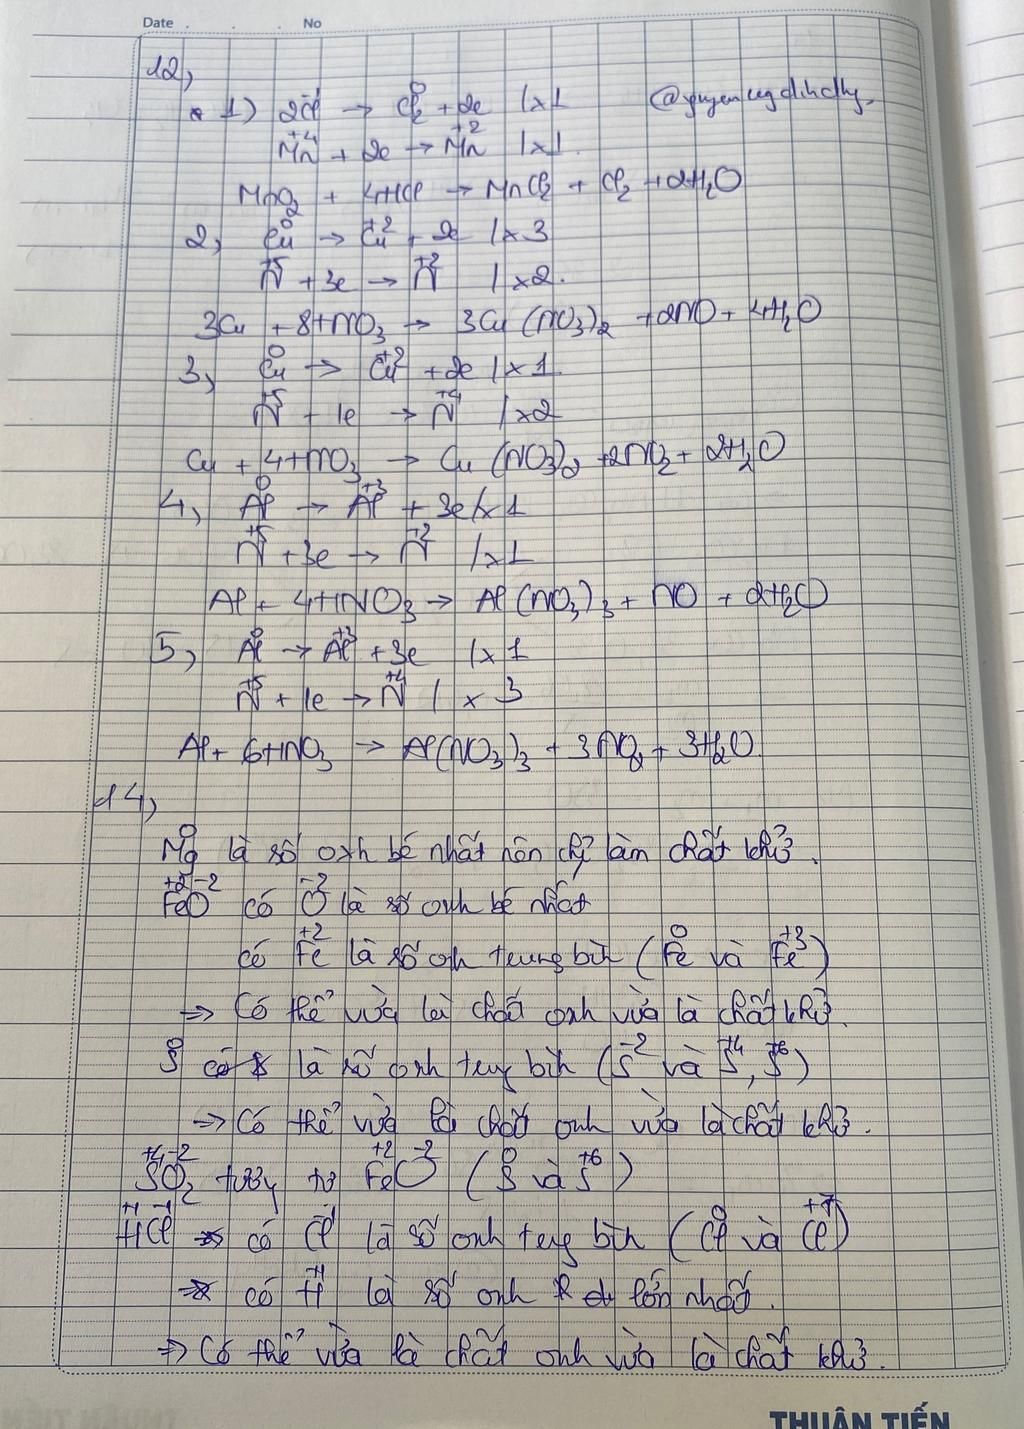 Date . . . No
12,
1) 2Cl⁻¹ → Cl₂⁰ + 2e | x1
Mn⁺⁴ + 2e → Mn⁺² | x1.
MnO₂ + 4HCl → MnCl₂ + Cl₂ + 2H₂O
2, Cu⁰ → Cu⁺² + 2e | x3
N⁺⁵ + 3e → N⁺² | x2.
3Cu + 8HNO₃ → 3Cu(NO₃)₂ + 2NO + 4H₂O
3, Cu⁰ → Cu⁺² + 2e | x1
N⁺⁵ + 1e → N⁺⁴ | x2
Cu + 4HNO₃ → Cu(NO₃)₂ + 2NO₂ + 2H₂O
4, Al⁰ → Al⁺³ + 3e | x1
N⁺⁵ + 3e → N⁺² | x1
Al + 4HNO₃ → Al(NO₃)₃ + NO + 2H₂O
5, Al⁰ → Al⁺³ + 3e | x1
N⁺⁵ + 1e → N⁺⁴ | x3
Al + 6HNO₃ → Al(NO₃)₃ + 3NO₂ + 3H₂O
14,
Mg⁰ là số oxh bé nhất nên chỉ làm chất khử.
Fe⁺²O⁻² có O⁻² là số oxh bé nhất
có Fe⁺² là số oxh trung bình (Fe⁰ và Fe⁺³)
⇒ Có thể vừa là chất oxh vừa là chất khử.
S⁰ là số oxh trung bình (S⁻² và S⁺⁴, S⁺⁶)
→ Có thể vừa là chất oxh vừa là chất khử.
S⁺⁴O₂⁻² tương tự Fe⁺²O⁻² (S⁰ và S⁺⁶)
H⁺¹Cl⁻¹ có Cl⁻¹ là số oxh trung bình (Cl⁰ và Cl⁺⁷)
có H⁺¹ là số oxh lớn nhất.
⇒ Có thể vừa là chất oxh vừa là chất khử.
THUẬN TIẾN